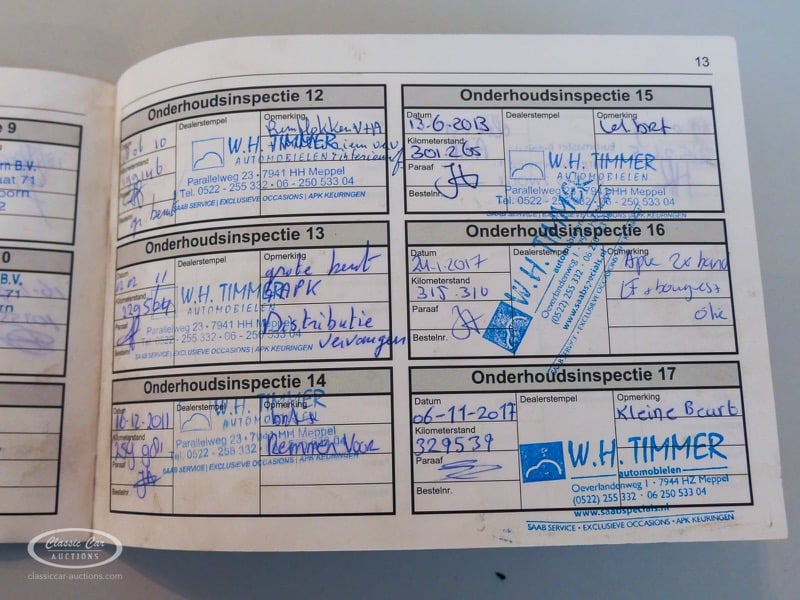 13
9
rn B.V.
aat 71
oorn
2
0
B.V.
71
Onderhoudsinspectie 12
Datum
Dealerstempel
Opmerking
Remblokken V+A
06 10
Kilometerstand
Paraaf
Bestelnr.
gr. beurt
W.H. TIMMER
AUTOMOBIELEN
Parallelweg 23 • 7941 HH Meppel
Tel. 0522 - 255 332 - 06 - 250 533 04
SAAB SERVICE | EXCLUSIEVE OCCASIONS | APK KEURINGEN
Onderhoudsinspectie 13
Datum
Dealerstempel
Opmerking
11
grote beurt
Kilometerstand
APK
Paraaf
Distributie
vervangen
Bestelnr.
W.H. TIMMER
AUTOMOBIELEN
Parallelweg 23 • 7941 HH Meppel
Tel. 0522 - 255 332 - 06 - 250 533 04
SAAB SERVICE | EXCLUSIEVE OCCASIONS | APK KEURINGEN
Onderhoudsinspectie 14
Datum
Dealerstempel
Opmerking
16-12-2011
Kilometerstand
Remmen Voor
Paraaf
Bestelnr.
W.H. TIMMER
AUTOMOBIELEN
Parallelweg 23 • 7941 HH Meppel
Tel. 0522 - 255 332 - 06 - 250 533 04
SAAB SERVICE | EXCLUSIEVE OCCASIONS | APK KEURINGEN
Onderhoudsinspectie 15
Datum
Dealerstempel
Opmerking
13-6-2013
Kilometerstand
301.265
Paraaf
Bestelnr.
W.H. TIMMER
AUTOMOBIELEN
Parallelweg 23 • 7941 HH Meppel
Tel. 0522 - 255 332 - 06 - 250 533 04
SAAB SERVICE | EXCLUSIEVE OCCASIONS | APK KEURINGEN
Onderhoudsinspectie 16
Datum
Dealerstempel
Opmerking
24.1.2017
Apk 2x band
Kilometerstand
315.310
olie
Paraaf
Bestelnr.
W.H. TIMMER
automobielen
Oeverlandenweg 1 • 7944 HZ Meppel
(0522) 255 332 • 06 250 533 04
www.saabspecials.nl
SAAB SERVICE • EXCLUSIEVE OCCASIONS • APK KEURINGEN
Onderhoudsinspectie 17
Datum
Dealerstempel
Opmerking
06-11-2017
Kleine Beurt
Kilometerstand
329539
Paraaf
Bestelnr.
W.H. TIMMER
automobielen
Oeverlandenweg 1 • 7944 HZ Meppel
(0522) 255 332 • 06 250 533 04
www.saabspecials.nl
SAAB SERVICE • EXCLUSIEVE OCCASIONS • APK KEURINGEN
Classic Car
AUCTIONS
classiccar-auctions.com